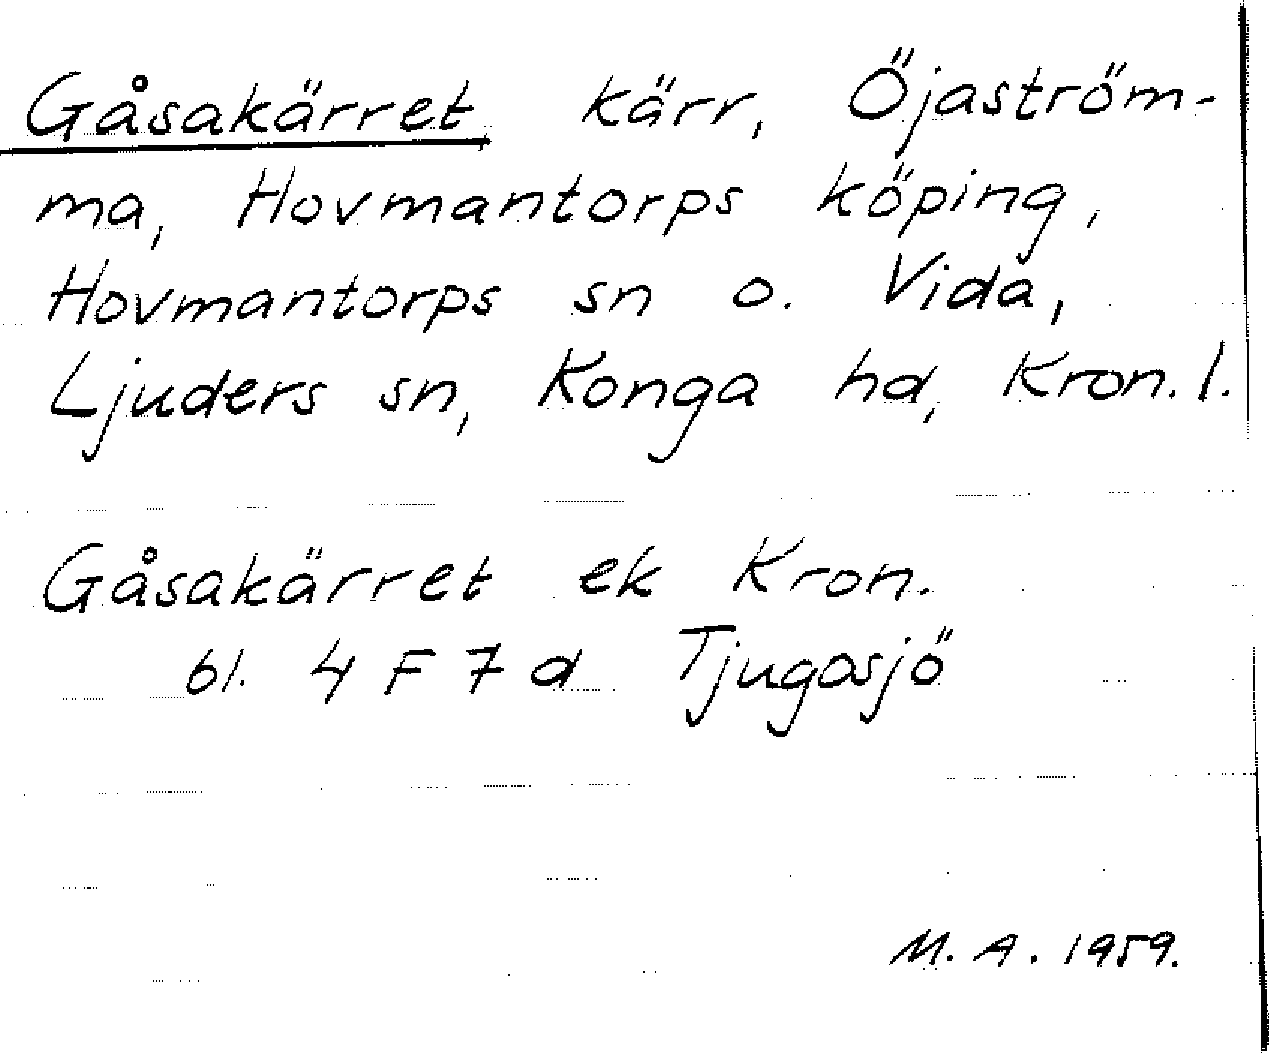 Gåsakärret kärr, Öjaström-
ma, Hovmantorps köping,
Hovmantorps sn o. Vida,
Ljuders sn, Konga hd, Kron. l.
Gåsakärret ek Kron.
bl. 4 F 7 d Tjugosjö
M. A. 1959.